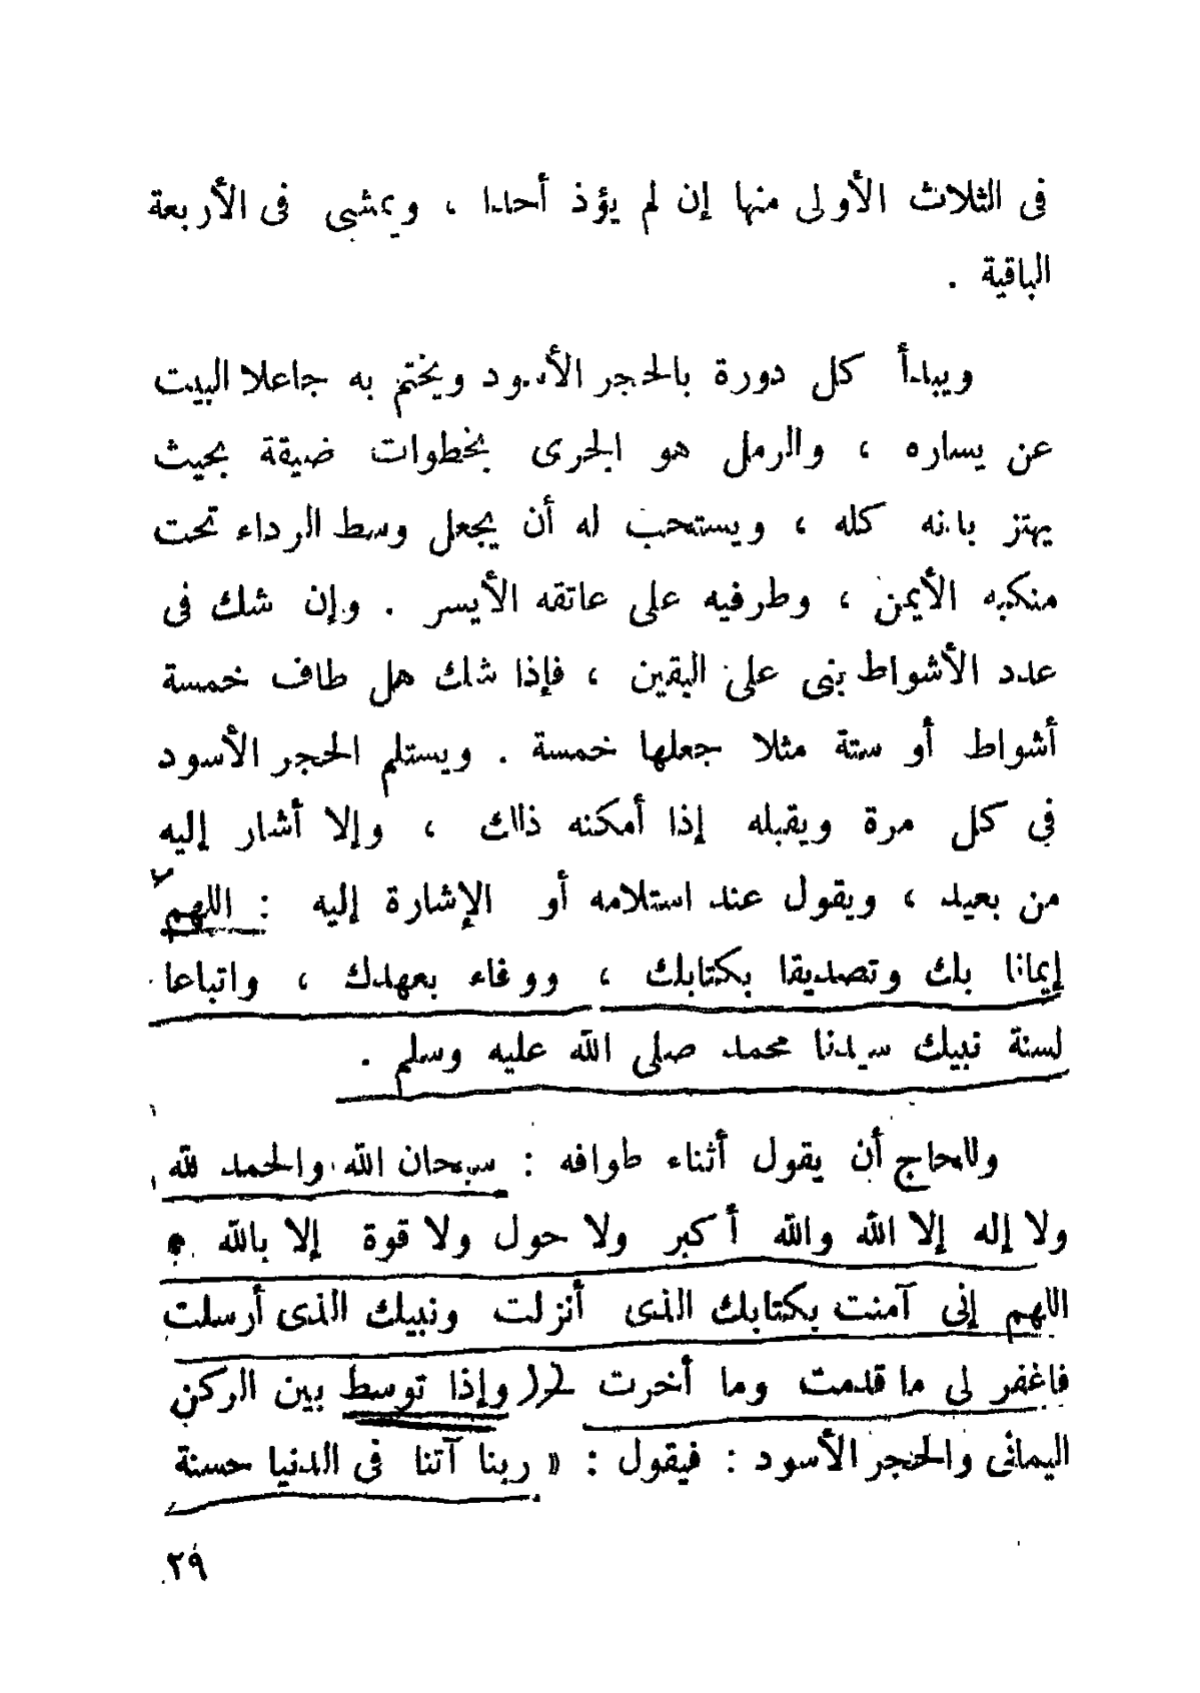 فى الثلاث الأولى منها إن لم يؤذ أحدا ، ويمشى فى الأربعة
الباقية .
ويبدأ كل دورة بالحجر الأسود ويختم به جاعلا البيت
عن يساره ، والرمل هو الجرى بخطوات ضيقة بحيث
يهتز بدنه كله ، ويستحب له أن يجعل وسط الرداء تحت
منكبه الأيمن ، وطرفيه على عاتقه الأيسر . وإن شك فى
عدد الأشواط بنى على اليقين ، فإذا شك هل طاف خمسة
أشواط أو ستة مثلا جعلها خمسة . ويستلم الحجر الأسود
فى كل مرة ويقبله إذا أمكنه ذلك ، وإلا أشار إليه
من بعيد ، ويقول عند استلامه أو الإشارة إليه : اللهم
إيمانا بك وتصديقا بكتابك ، ووفاء بعهدك ، واتباعا
لسنة نبيك سيدنا محمد صلى الله عليه وسلم .
وللحاج أن يقول أثناء طوافه : سبحان الله والحمد لله
ولا إله إلا الله والله أكبر ولا حول ولا قوة إلا بالله .
اللهم إنى آمنت بكتابك الذى أنزلت ونبيك الذى أرسلت
فاغفر لى ما قدمت وما أخرت )) وإذا توسط بين الركن
اليمانى والحجر الأسود : فيقول : « ربنا آتنا فى الدنيا حسنة
٢٩